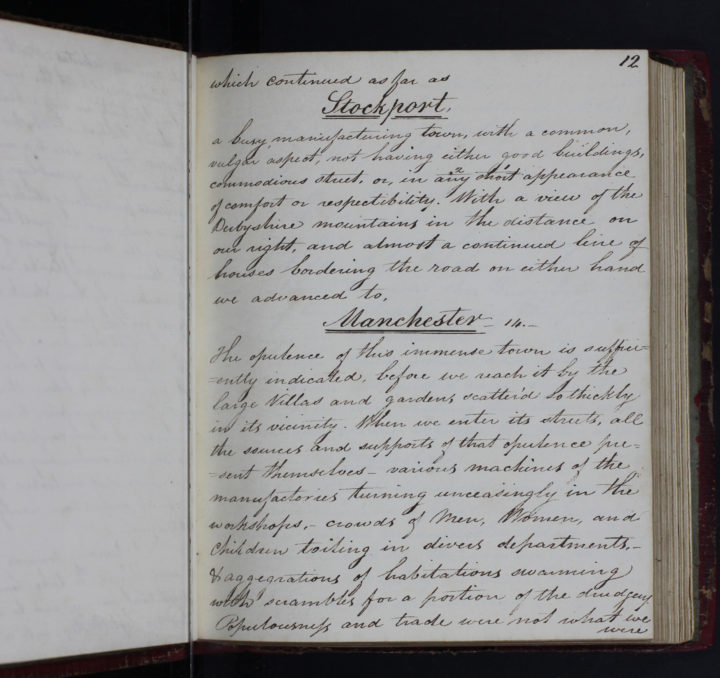 12
which continued as far as
Stockport,
a busy manufacturing town, with a common,
vulgar aspect, not having either good buildings,
commodious street, or, in any short appearance
of comfort or respectibility. With a view of the
Derbyshire mountains in the distance on
our right, and almost a continued line of
houses bordering the road on either hand
we advanced to,
Manchester - 14.-
The opulence of this immense town is suffici=
=ently indicated, before we reach it by the
large Villas and gardens scatter'd so thickly
in its vicinity. When we enter its streets, all
the sources and supports of that opulence pre-
-sent themselves - various machines of the
manufactories turning unceasingly in the
workshops, - crowds of Men, Women, and
Children toiling in divers departments -
& aggegrations of habitations swarming
with scrambles for a portion of the drudgery.
Populousneſs and trade were not what we
were